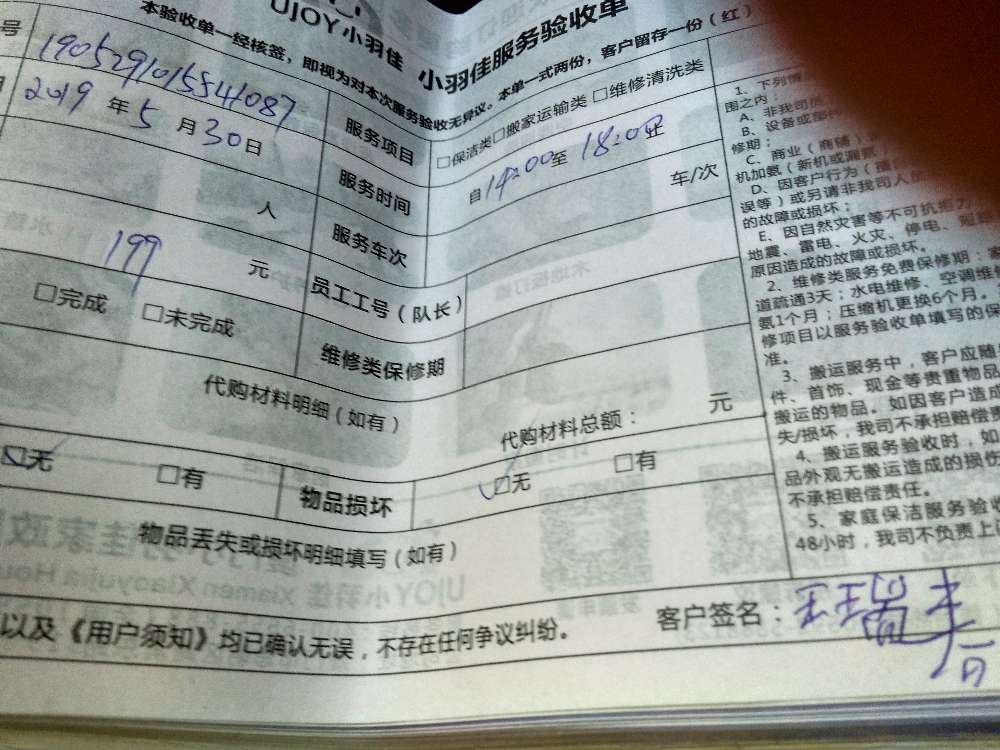 UJOY小羽佳 小羽佳服务验收单
本验收单一经核签，即视为对本次服务验收无异议。本单一式两份，客户留存一份（红）
号 190529101554087
服务项目 □保洁类□搬家运输类 □维修清洗类
2019年5月30日
服务时间 自14:00至18:00止
人 服务车次 车/次
199元 员工工号（队长）
□完成 □未完成 维修类保修期
代购材料明细（如有） 代购材料总额： 元
□无 □有 物品损坏 □无 □有
物品丢失或损坏明细填写（如有）
以及《用户须知》均已确认无误，不存在任何争议纠纷。
客户签名：
1、下列情
围之内：
A、非我司
B、设备或部件
修期；
C、商业（商铺）
机加氨（新机或漏氨
D、因客户行为
误等）或另请非我司人
的故障或损坏；
E、因自然灾害等不可抗拒力
地震、雷电、火灾、停电、短
原因造成的故障或损坏。
2、维修类服务免费保修期：家
道疏通3天；水电维修、空调维
氨1个月；压缩机更换6个月。
修项目以服务验收单填写的保
准。
3、搬运服务中，客户应随
件、首饰、现金等贵重物品
搬运的物品。如因客户造成
失/损坏，我司不承担赔偿责
4、搬运服务验收时，如
品外观无搬运造成的损伤
不承担赔偿责任。
5、家庭保洁服务验收
48小时，我司不负责上